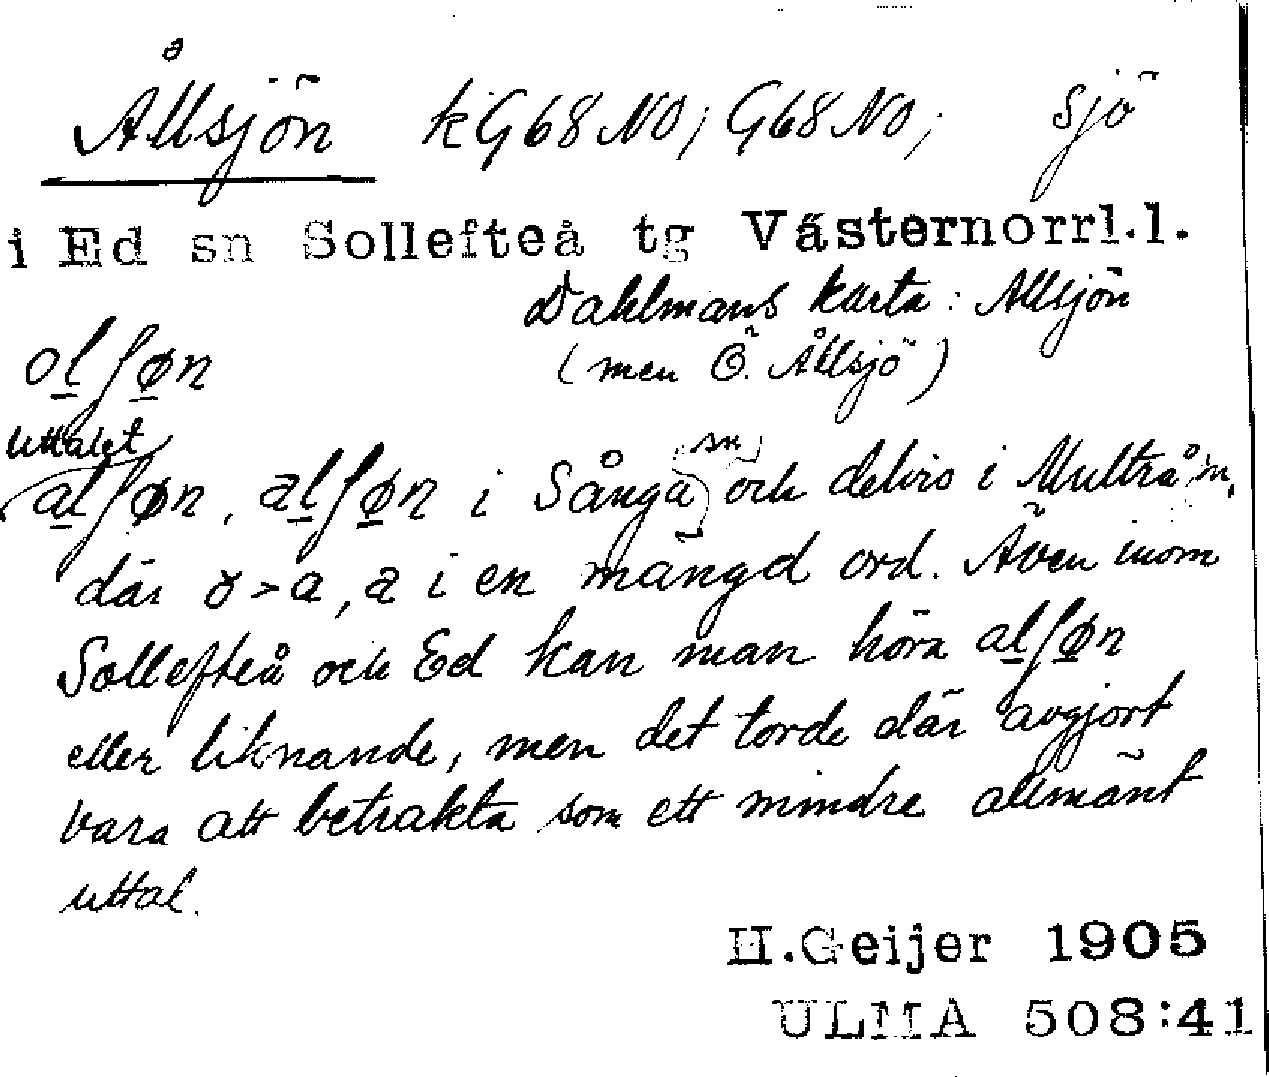 Ållsjön kG68NO; G68NO; sjö
i Ed sn Sollefteå tg Västernorrl.l.
Dahlmans karta: Allsjön
(men Ö. Ållsjö)
ol̲ʃø̲n
Uttalet
al̲ʃø̲n, al̲ʃø̲n i Sånga sn och delvis i Multrå sn,
där o > a, a i en mängd ord. Även inom
Sollefteå och Ed kan man höra al̲ʃø̲n
eller liknande, men det torde där avgjort
vara att betrakta som ett mindre allmänt
uttal.
H.Geijer 1905
ULMA 508:41